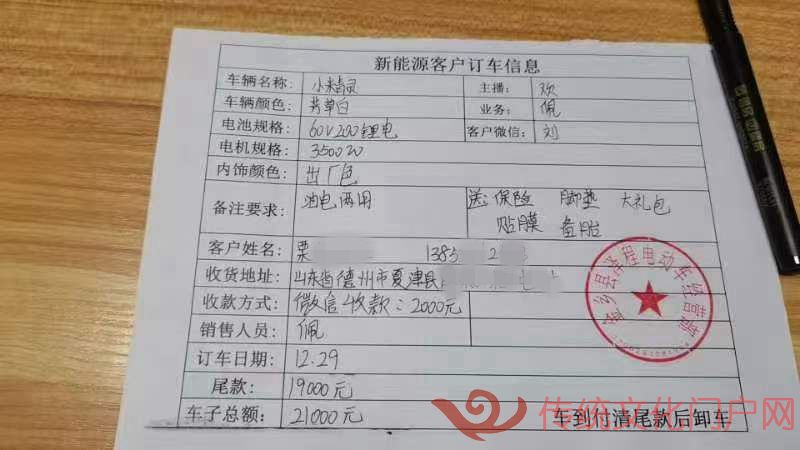 新能源客户订车信息
车辆名称: 小精灵 主播: 欢
车辆颜色: 芳草白 业务: 佩
电池规格: 60V200锂电 客户微信: 刘
电机规格: 3500W
内饰颜色: 出厂色
备注要求: 油电两用 送: 保险 脚垫 大礼包
贴膜 备胎
客户姓名: 栗
收货地址: 山东省德州市夏津县
收款方式: 微信收款: 2000元
销售人员: 佩
订车日期: 12.29
尾款: 19000元
车子总额: 21000元 车到付清尾款后卸车
金乡县泽程电动车经营部
传统文化门户网